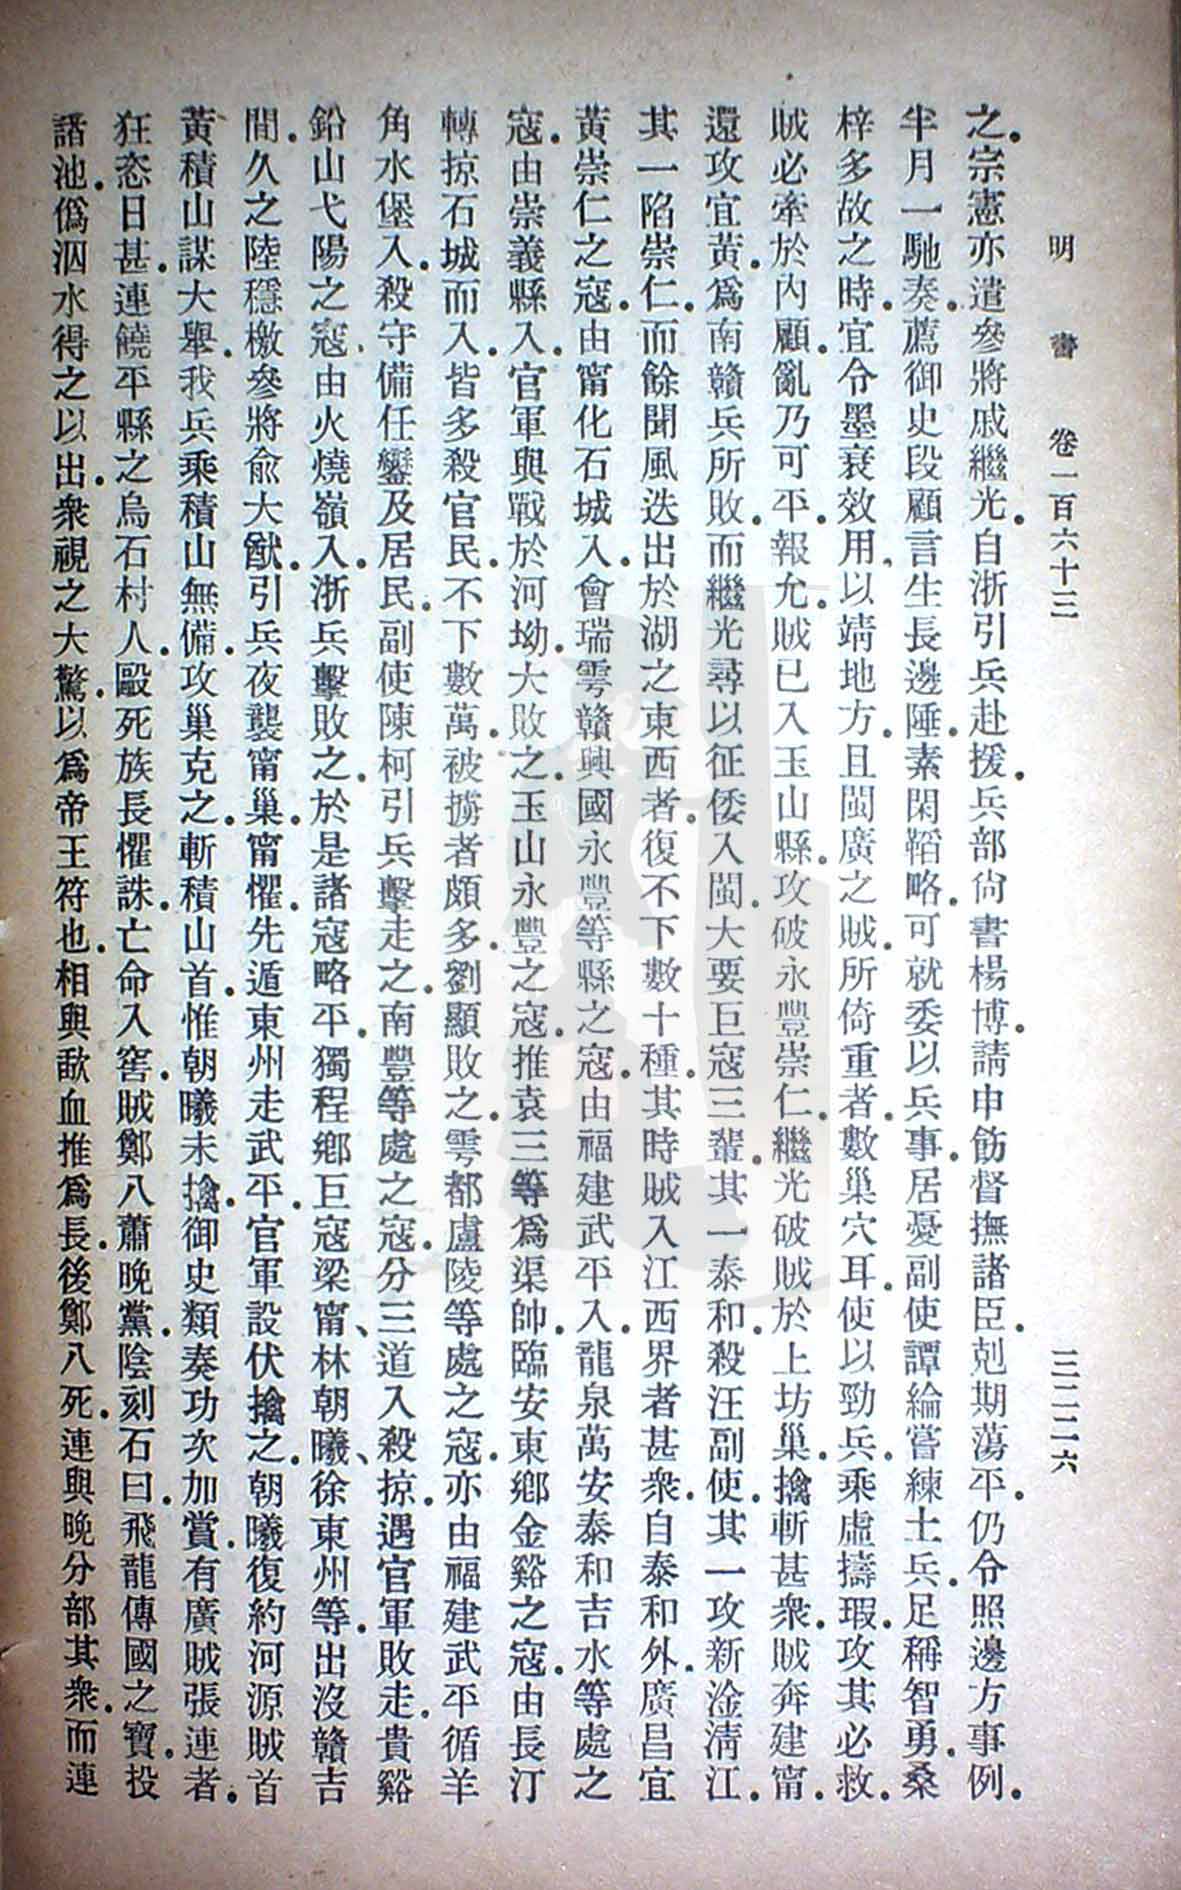 明書 卷一百六十三 三二二六
之宗憲亦遣參將戚繼光自浙引兵赴援兵部尙書楊博請申飭督撫諸臣剋期蕩平仍令照邊方事例
半月一馳奏薦御史段顧言生長邊陲素閑韜略可就委以兵事居憂副使譚綸嘗練士兵足稱智勇桑
梓多故之時宜令墨衰效用以靖地方且閩廣之賊所倚重者數巢穴耳使以勁兵乘虛擣瑕攻其必救
賊必牽於內顧亂乃可平報允賊已入玉山縣攻破永豐崇仁繼光破賊於上坊巢擒斬甚衆賊奔建甯
還攻宜黃爲南贛兵所敗而繼光尋以征倭入閩大要巨寇三輩其一泰和殺汪副使其一攻新淦淸江
其一陷崇仁而餘聞風迭出於湖之東西者復不下數十種其時賊入江西界者甚衆自泰和外廣昌宜
黃崇仁之寇由甯化石城入會瑞雩贛興國永豐等縣之寇由福建武平入龍泉萬安泰和吉水等處之
寇由崇義縣入官軍與戰於河坳大敗之玉山永豐之寇推袁三等爲渠帥臨安東鄉金谿之寇由長汀
轉掠石城而入皆多殺官民不下數萬被擄者頗多劉顯敗之雩都盧陵等處之寇亦由福建武平循羊
角水堡入殺守備任鑾及居民副使陳柯引兵擊走之南豐等處之寇分三道入殺掠遇官軍敗走貴谿
鉛山弋陽之寇由火燒嶺入浙兵擊敗之於是諸寇略平獨程鄉巨寇梁甯、林朝曦、徐東州等出沒贛吉
間久之陸穩檄參將俞大猷引兵夜襲甯巢甯懼先遁東州走武平官軍設伏擒之朝曦復約河源賊首
黃積山謀大舉我兵乘積山無備攻巢克之斬積山首惟朝曦未擒御史類奏功次加賞有廣賊張連者
狂恣日甚連饒平縣之烏石村人毆死族長懼誅亡命入窖賊鄭八蕭晚黨陰刻石曰飛龍傳國之寶投
諸池僞泅水得之以出衆視之大驚以爲帝王符也相與歃血推爲長後鄭八死連與晚分部其衆而連